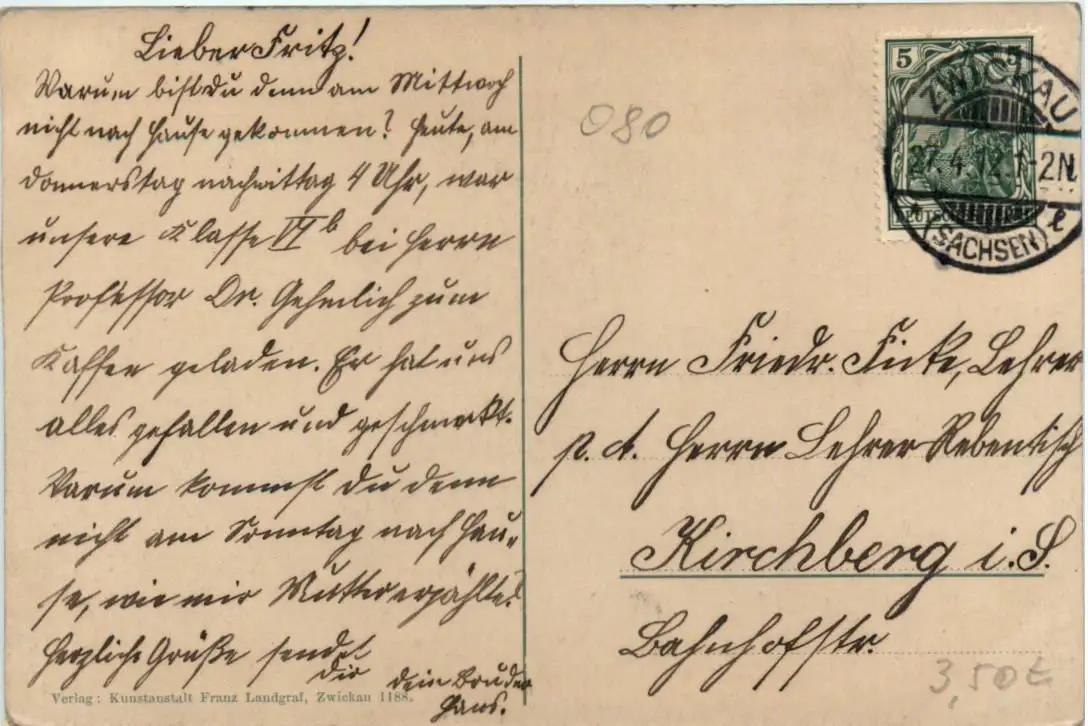 Lieber Fritz!
Warum bist du denn am Mittwoch
nicht nach Hause gekommen? Heute, am
Donnerstag nachmittag 4 Uhr, war
unsere Klasse VI b bei Herrn
Professor Dr. Gehmlich zum
Kaffee geladen. Er hat uns
alles gefallen und geschmeckt.
Warum kommst du denn
nicht am Sonntag nach Hau-
se, wie mir Mutter erzählte?
Herzliche Grüße sendet
dir dein Bruder
Hans.
Verlag: Kunstanstalt Franz Landgraf, Zwickau 1188.
080
5 5
ZWICKAU
27.4.12.1-2N.
* (SACHSEN) l
Herrn Friedr. Ficke, Lehrer
p. A. Herrn Lehrer Rebentisch
Kirchberg i. S.
Bahnhofstr.
3,50 €